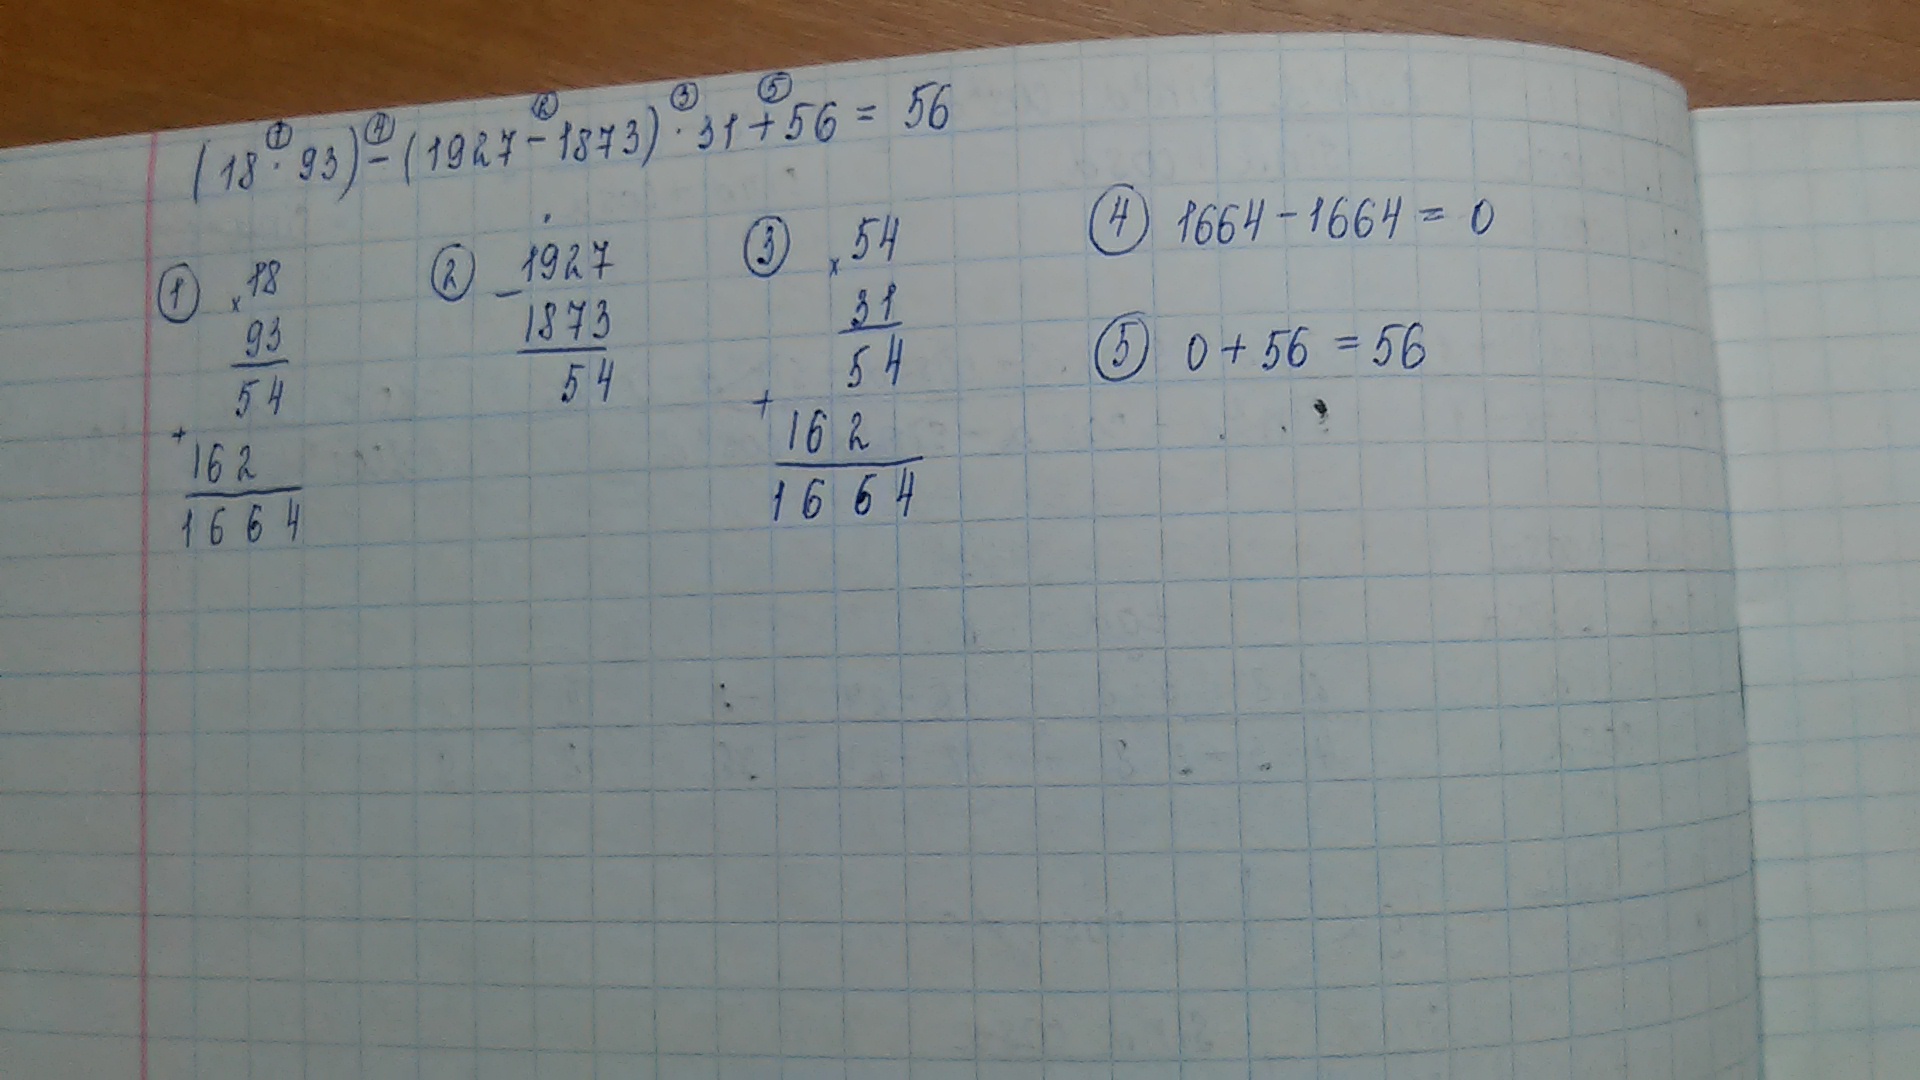 (18 · 93) - (1927 - 1873) · 31 + 56 = 56
① ④ ② ③ ⑤
① × 18
93
54
+
162
1664
② - 1927
1873
54
③ × 54
31
54
+
162
1664
④ 1664 - 1664 = 0
⑤ 0 + 56 = 56